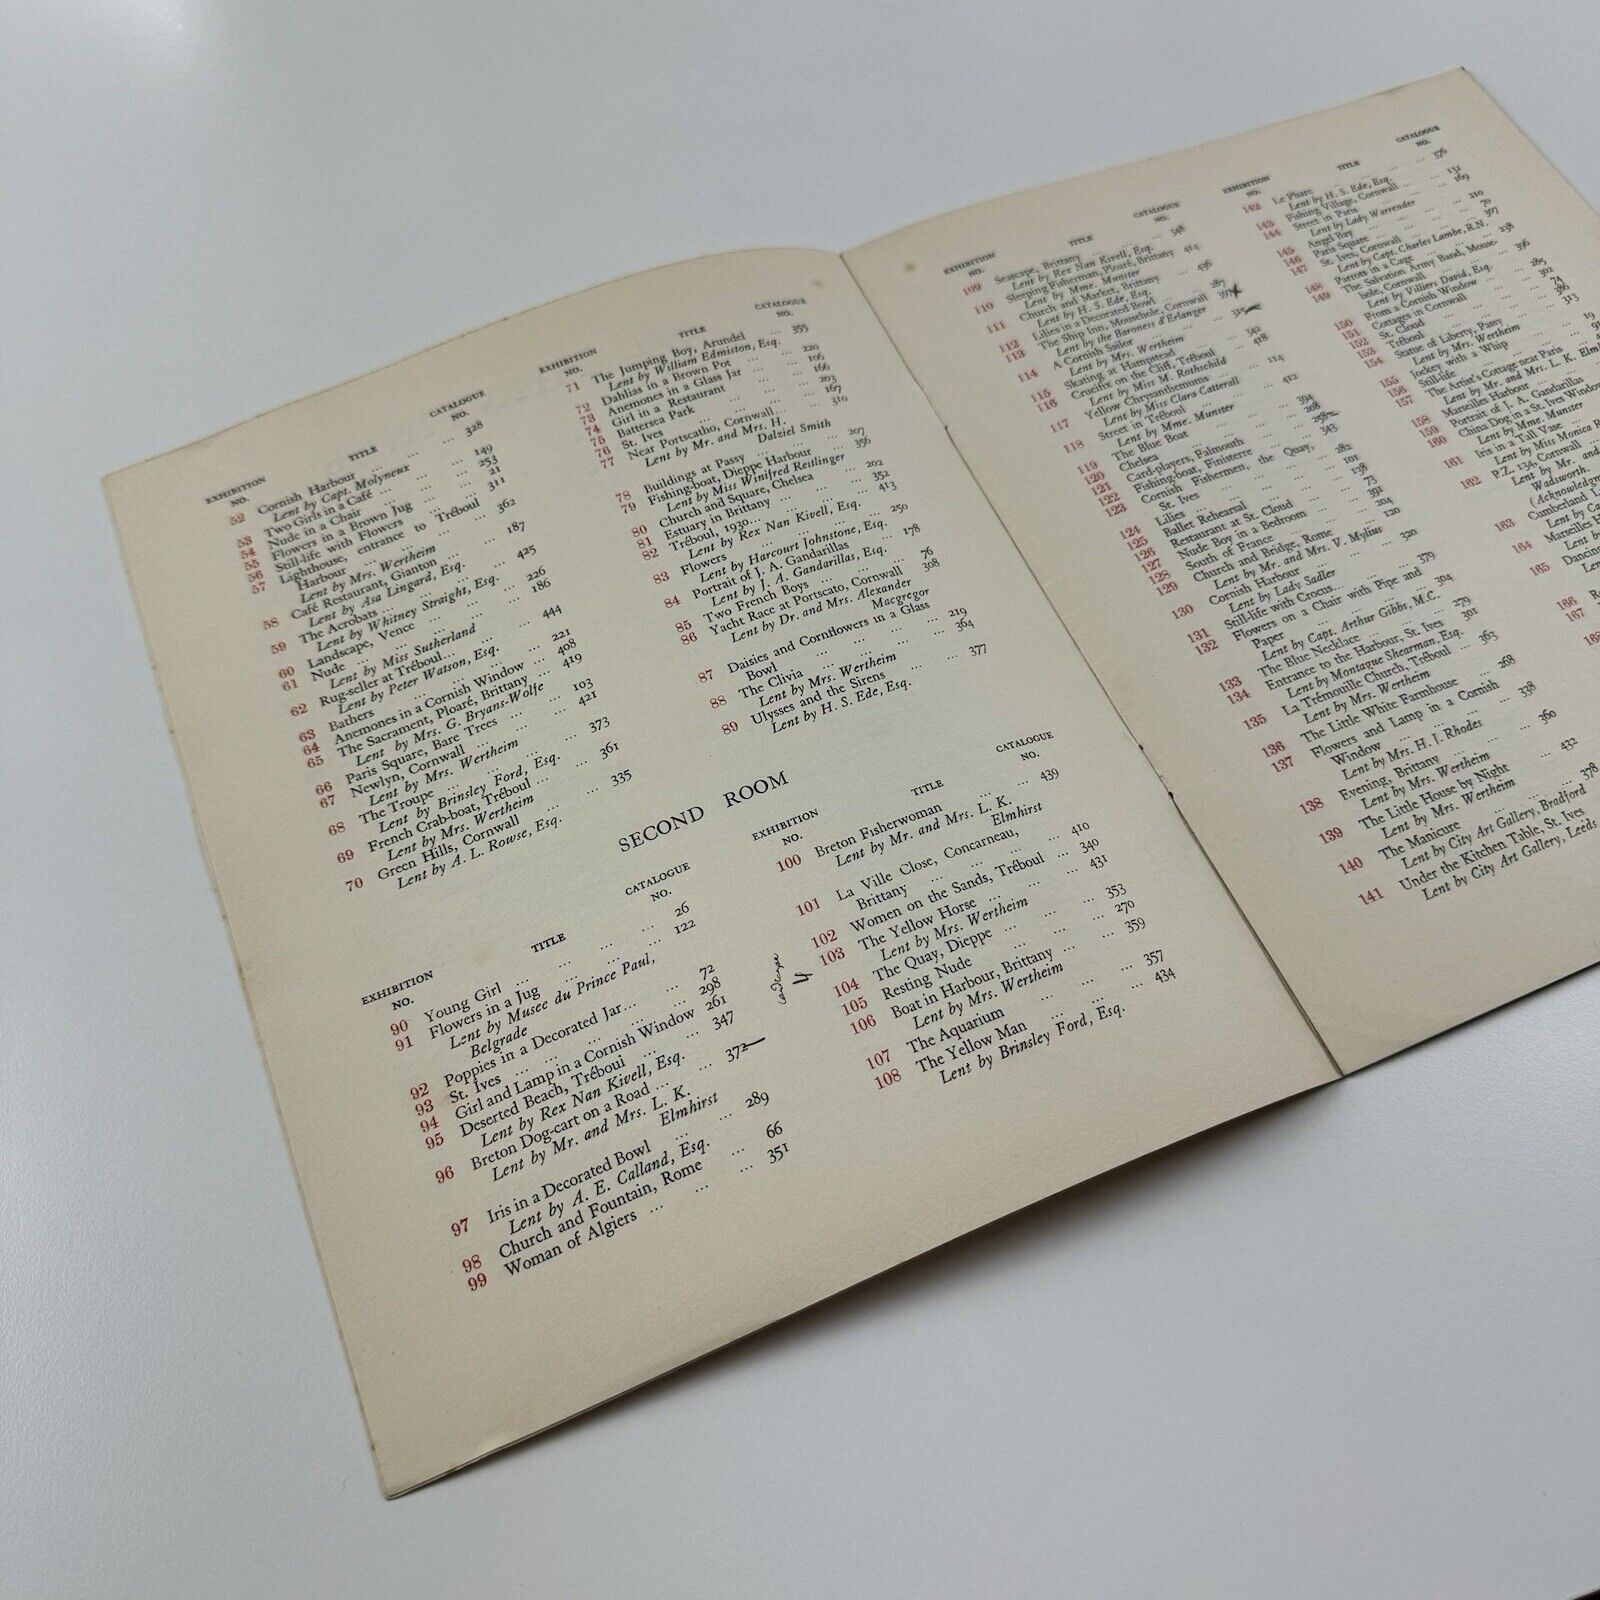 EXHIBITION NO. TITLE CATALOGUE NO.
52 Cornish Harbour ... ... 328
Lent by Capt. Molyneux
53 Two Girls in a Café ... 149
54 Nude in a Chair ... 253
55 Flowers in a Brown Jug ... 21
56 Still-life with Flowers ... 311
57 Lighthouse, entrance to Tréboul
Harbour ... ... 362
Lent by Mrs. Wertheim
58 Café Restaurant, Gianton ... 187
Lent by Asa Lingard, Esq.
59 The Acrobats ... ... 425
Lent by Whitney Straight, Esq.
60 Landscape, Vence ... 226
61 Nude ... ... 186
Lent by Miss Sutherland
62 Rug-seller at Tréboul... ... 444
Lent by Peter Watson, Esq.
63 Bathers ... ... 221
64 Anemones in a Cornish Window ... 408
65 The Sacrament, Ploaré, Brittany ... 419
Lent by Mrs. G. Bryans-Wolfe
66 Paris Square, Bare Trees ... 103
67 Newlyn, Cornwall ... ... 421
Lent by Mrs. Wertheim
68 The Troupe ... ... 373
Lent by Brinsley Ford, Esq.
69 French Crab-boat, Tréboul ... 361
Lent by Mrs. Wertheim
70 Green Hills, Cornwall ... 335
Lent by A. L. Rowse, Esq.
EXHIBITION NO. TITLE CATALOGUE NO.
71 The Jumping Boy, Arundel ... 355
Lent by William Edmiston, Esq.
72 Dahlias in a Brown Pot ... 220
73 Anemones in a Glass Jar ... 106
74 Girl in a Restaurant ... 166
75 Battersea Park ... 203
76 St. Ives ... ... 167
77 Near Portscatho, Cornwall... 310
Lent by Mr. and Mrs. H.
Dalziel Smith
78 Buildings at Passy ... 207
79 Fishing-boat, Dieppe Harbour 356
Lent by Miss Winifred Reitlinger
80 Church and Square, Chelsea 202
81 Estuary in Brittany ... 352
82 Tréboul, 1930... ... 413
Lent by Rex Nan Kivell, Esq.
83 Flowers ... ... 250
Lent by Harcourt Johnstone, Esq.
84 Portrait of J. A. Gandarillas ... 178
Lent by J. A. Gandarillas, Esq.
85 Two French Boys ... 76
86 Yacht Race at Portscato, Cornwall 308
Lent by Dr. and Mrs. Alexander
Macgregor
87 Daisies and Cornflowers in a Glass
Bowl ... ... 219
88 The Clivia ... ... 364
Lent by Mrs. Wertheim
89 Ulysses and the Sirens ... 377
Lent by H. S. Ede, Esq.
SECOND ROOM
EXHIBITION NO. TITLE CATALOGUE NO.
90 Young Girl ... ... 26
91 Flowers in a Jug ... ... 122
Lent by Musee du Prince Paul,
Belgrade
92 Poppies in a Decorated Jar... ... 72
93 St. Ives ... ... 298
94 Girl and Lamp in a Cornish Window 261
95 Deserted Beach, Tréboul ... 347
Lent by Rex Nan Kivell, Esq.
96 Breton Dog-cart on a Road ... ... 372
Lent by Mr. and Mrs. L. K.
Elmhirst
97 Iris in a Decorated Bowl ... 289
Lent by A. E. Calland, Esq.
98 Church and Fountain, Rome ... 66
99 Woman of Algiers ... ... 351
EXHIBITION NO. TITLE CATALOGUE NO.
100 Breton Fisherwoman ... 439
Lent by Mr. and Mrs. L. K.
Elmhirst
101 La Ville Close, Concarneau,
Brittany ... ... 410
102 Women on the Sands, Tréboul ... 340
103 The Yellow Horse ... ... 431
Lent by Mrs. Wertheim
104 The Quay, Dieppe ... ... 353
105 Resting Nude ... ... 270
106 Boat in Harbour, Brittany ... 359
Lent by Mrs. Wertheim
107 The Aquarium ... ... 357
108 The Yellow Man ... ... 434
Lent by Brinsley Ford, Esq.
EXHIBITION NO. TITLE CATALOGUE NO.
109 Seascape, Brittany ... 348
Lent by Rex Nan Kivell, Esq.
110 Sleeping Fisherman, Ploaré, Brittany 414
Lent by Mme. Munster
111 Church and Market, Brittany ... 436
Lent by H. S. Ede, Esq.
112 Lilies in a Decorated Bowl ... 287
113 The Ship Inn, Mousehole, Cornwall
Lent by the Baroness d'Erlanger
114 A Cornish Sailor ... ... 315
Lent by Mrs. Wertheim
115 Skating at Hampstead ... 342
116 Crucifix on the Cliff, Tréboul ... 418
Lent by Miss M. Rothschild
117 Yellow Chrysanthemums ... 114
Lent by Miss Clara Catterall
118 Street in Tréboul ... 412
Lent by Mme. Munster
119 The Blue Boat ... ... 394
120 Chelsea ... ... 208
121 Card-players, Falmouth ... 258
122 Fishing-boat, Finisterre ... 343
123 Cornish Fishermen, the Quay,
St. Ives ... ... 282
124 Lilies ... ... 101
125 Ballet Rehearsal ... 138
126 Restaurant at St. Cloud ... 73
127 Nude Boy in a Bedroom ... 391
128 South of France ... 204
129 Church and Bridge, Rome ... 120
Lent by Mr. and Mrs. V. Mylius
130 Cornish Harbour ... ... 320
Lent by Lady Sadler
131 Still-life with Crocus... ... 379
132 Flowers on a Chair with Pipe and
Paper ... ... 304
Lent by Capt. Arthur Gibbs, M.C.
133 The Blue Necklace ... 279
134 Entrance to the Harbour, St. Ives 301
Lent by Montague Shearman, Esq.
135 La Trémouille Church, Tréboul ... 363
Lent by Mrs. Wertheim
136 The Little White Farmhouse ... 268
137 Flowers and Lamp in a Cornish
Window ... ... 338
Lent by Mrs. H. J. Rhodes
138 Evening, Brittany ... ... 360
Lent by Mrs. Wertheim
139 The Little House by Night ... 432
Lent by Mrs. Wertheim
140 The Manicure ... ... 378
Lent by City Art Gallery, Bradford
141 Under the Kitchen Table, St. Ives
Lent by City Art Gallery, Leeds
EXHIBITION NO. TITLE CATALOGUE NO.
142 Le Phare ... ... 376
Lent by H. S. Ede, Esq.
143 Fishing Village, Cornwall ... 131
144 Street in Paris ... 169
Lent by Lady Warrender
145 Angel Bay ... ... 210
146 Paris Square ... ... 70
147 St. Ives, Cornwall ... 307
Lent by Capt. Charles Lambe, R.N.
148 Parrots in a Cage ... 238
149 The Salvation Army Band, Mouse-
hole, Cornwall ... 396
Lent by Villiers David, Esq.
150 From a Cornish Window ... 285
151 Cottages in Cornwall ... 302
152 St. Cloud ... ... 74
153 Tréboul ... ... 386
154 Statue of Liberty, Passy ... 313
Lent by Mrs. Wertheim
155 Jockey with a Whip ... 19
156 Still-life
157 The Artist's Cottage near Paris
Lent by Mr. and Mrs. L. K. Elmh
158 Marseilles Harbour ...
159 Portrait of J. A. Gandarillas
160 China Dog in a St. Ives Window
Lent by Mme. Munster
161 Iris in a Tall Vase ...
Lent by Miss Monica
162 P.Z. 134, Cornwall
Lent by Mr. and
Wadsworth.
(Acknowledgm
163 Cumberland L
Lent by Ca
164 Marseilles H
Lent by
165 Dancin
Lent
166
167